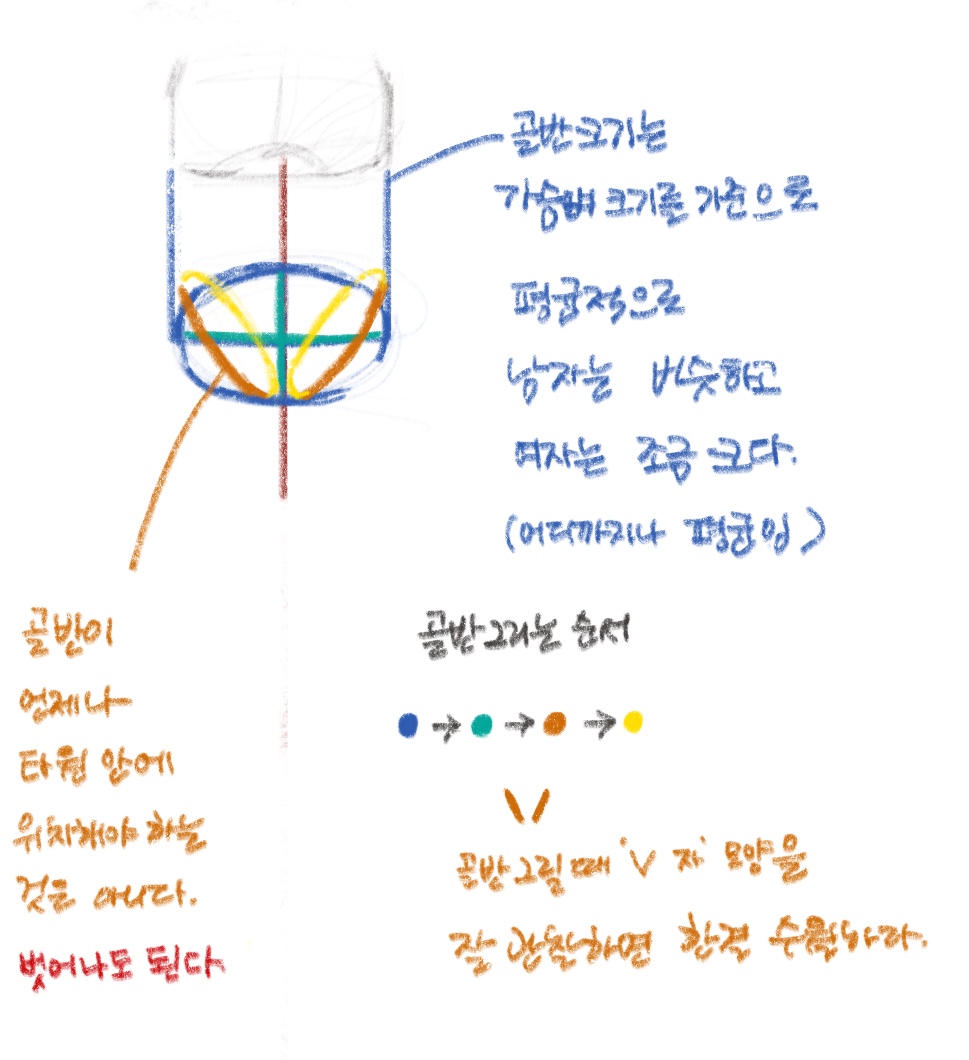 골반크기는
가슴뼈 크기를 기준으로
평균적으로
남자는 비슷하고
여자는 조금 크다.
(어디까지나 평균임)
골반이
언제나
타원 안에
위치해야 하는
것은 아니다.
벗어나도 된다
골반그리는 순서
→ → →
골반그릴때 'V 자' 모양을
잘 관찰하면 한결 수월하다.